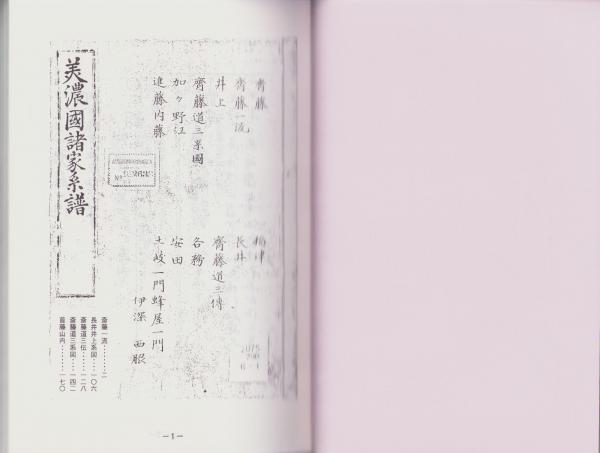 齊藤
齊藤一流
井上
齊藤道三系圖
加々野江
進藤内藤
長井
齊藤道三傳
各務
安田
土岐一門蜂屋一門
伊深 西脇
美濃國諸家系譜
斎藤一流………二
長井井上系図……一〇六
斎藤道三伝………一二八
斎藤道三系図……一四二
首藤山内…………一七〇
—1—